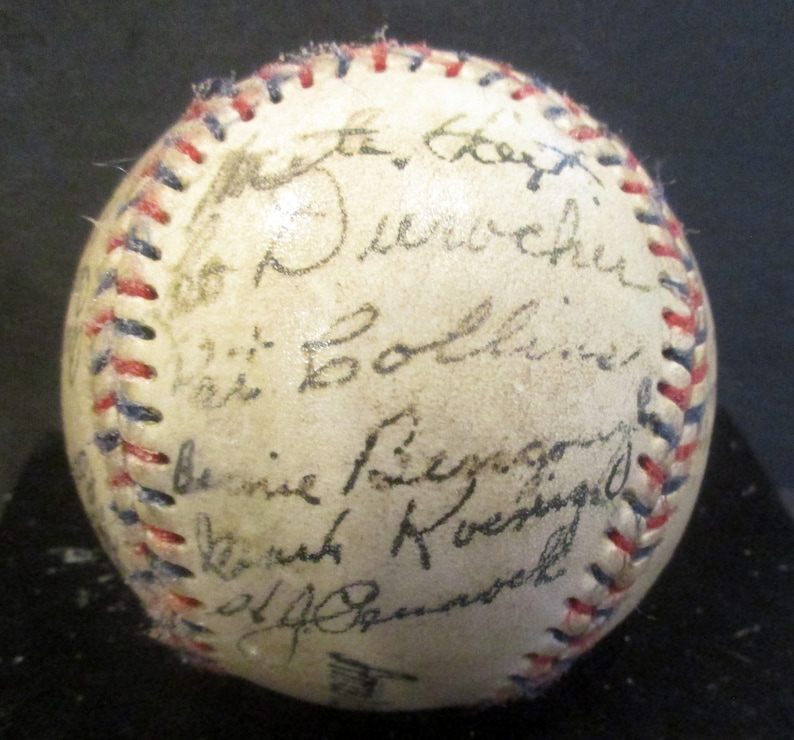 Waite Hoyt
Leo Durocher
Pat Collins
Bennie Bengough
Mark Koenig
H J Pennock